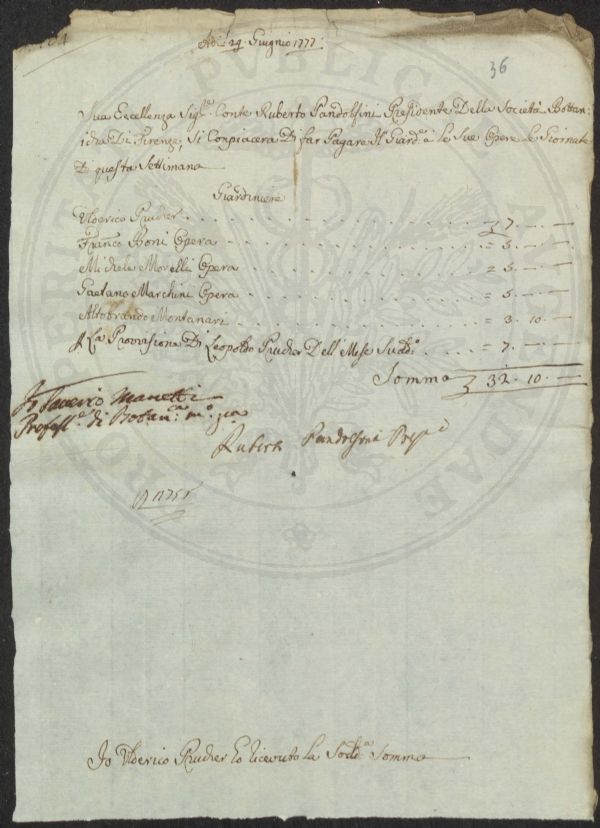 Adi: 29. Giugnio 1777:
36
Sua Eccellenza Sig:re Conte Ruberto Pandolfini Presidente Della Società Bottan:
icha Di Firenze, Si Conpiacera Di far Pagare Il Giard:o e le Sue Opere Le Giornate
Di questa Settimana
Giardiniere
Ulderico Prucher . . . . 7 . — . —
Franco Boni Opera . . . . = 5 . — . —
Michele Morelli Opera . . . . = 5 . — . —
Gaetano Marchini Opera . . . . = 5 . — . —
Aldobrando Montanari . . . . = 3 . 10 . —
P La Provisione Di Leopoldo Prucher Dell Mese Sud:o . . = 7 . — . —
Somma 32 . 10 . —
Saverio Manetti
Profess:e di Botan:ca m:o p:a
Ruberto Pandolfini Pres:e
Io Ulderico Prucher ho riceuto La Sod:a Somma
PUBLICAE
PROSPERITATI